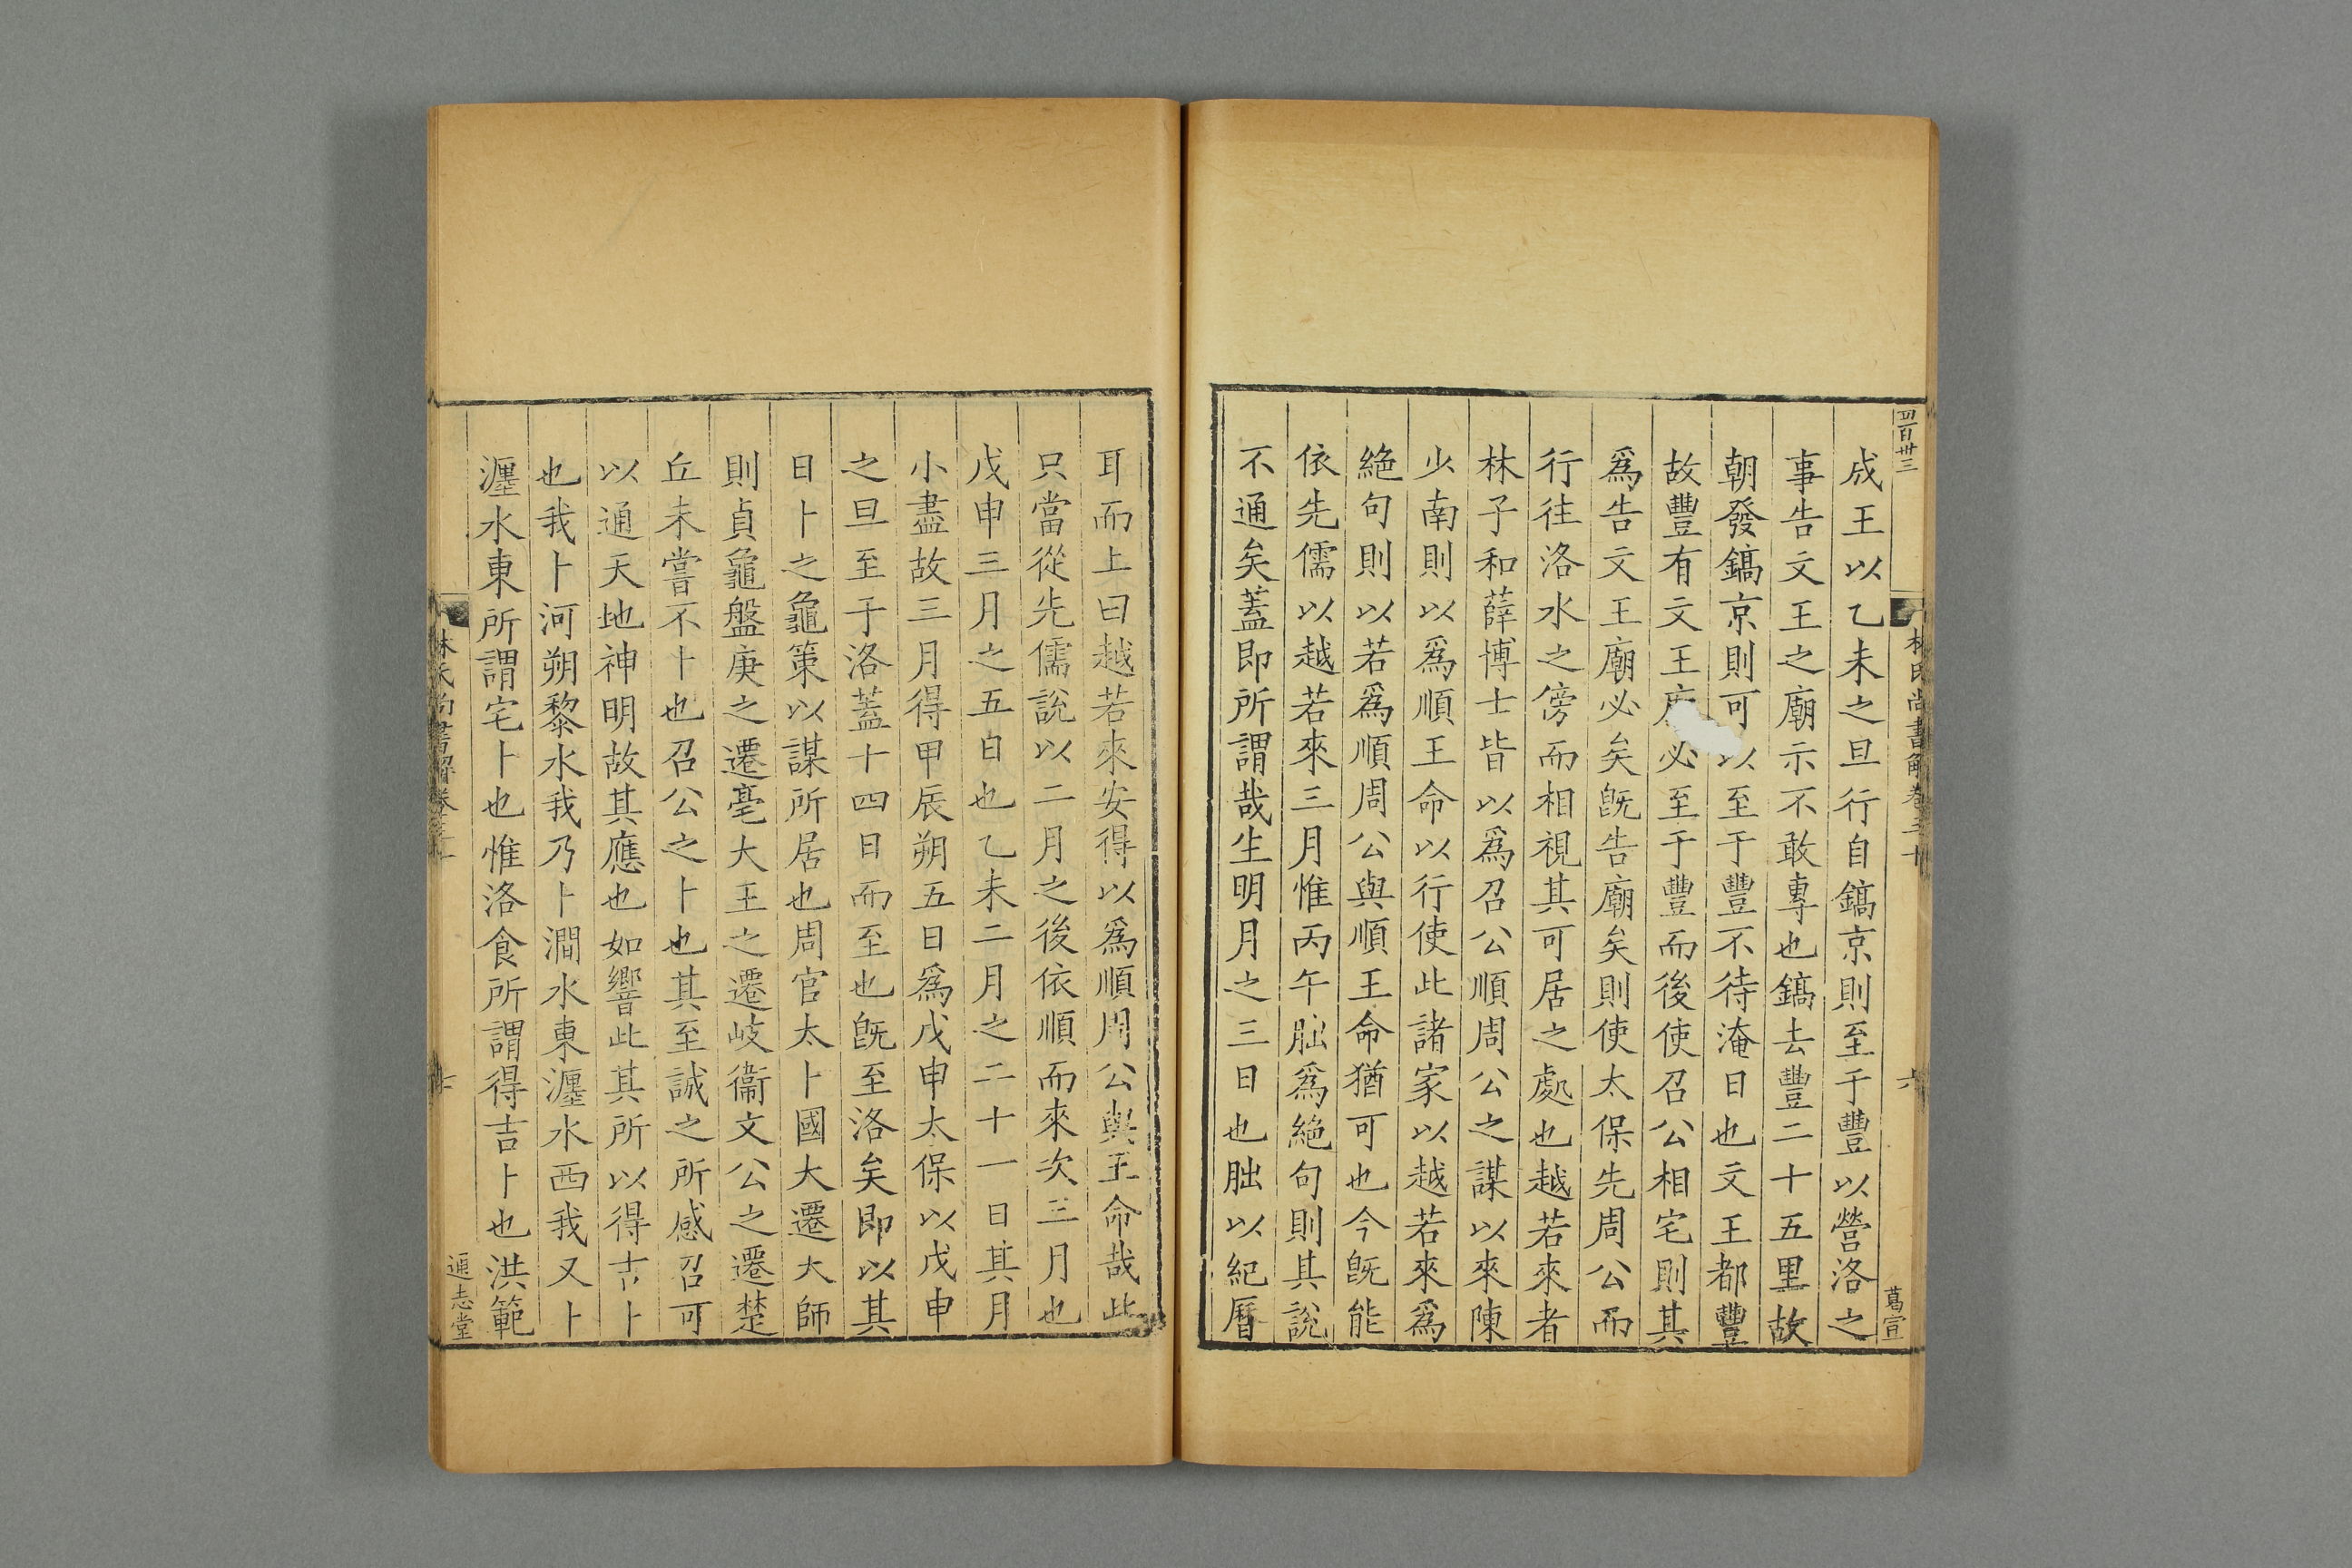 四百卅三
林氏尚書解卷三十
六
葛宣
成王以乙未之旦行自鎬京則至于豐以營洛之
事告文王之廟示不敢專也鎬去豐二十五里故
朝發鎬京則可以至于豐不待淹日也文王都豐
故豐有文王必至于豐而後使召公相宅則其
爲告文王廟必矣旣告廟矣則使太保先周公而
行往洛水之傍而相視其可居之處也越若來者
林子和薛博士皆以爲召公順周公之謀以來陳
少南則以爲順王命以行使此諸家以越若來爲
絶句則以若爲順周公與順王命猶可也今旣能
依先儒以越若來三月惟丙午朏爲絶句則其說
不通矣蓋即所謂哉生明月之三日也朏以紀曆
耳而上曰越若來安得以爲順周公與王命哉此
只當從先儒說以二月之後依順而來次三月也
戊申三月之五日也乙未二月之二十一日其月
小盡故三月得甲辰朔五日爲戊申太保以戊申
之旦至于洛蓋十四日而至也旣至洛矣即以其
日卜之龜策以謀所居也周官太卜國大遷大師
則貞龜盤庚之遷亳大王之遷岐衞文公之遷楚
丘未嘗不卜也召公之卜也其至誠之所感召可
以通天地神明故其應也如響此其所以得吉卜
也我卜河朔黎水我乃卜澗水東瀍水西我又卜
瀍水東所謂宅卜也惟洛食所謂得吉卜也洪範
林氏尚書解卷三十
七
通志堂